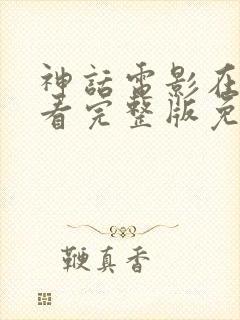 神話電影在
看完整版免
鞭真香